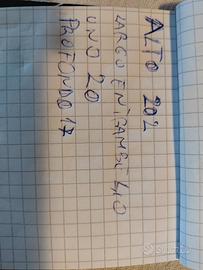 ALTO 202
LARGO ENTRAMBI 40
UNO 20
PROFONDO 17